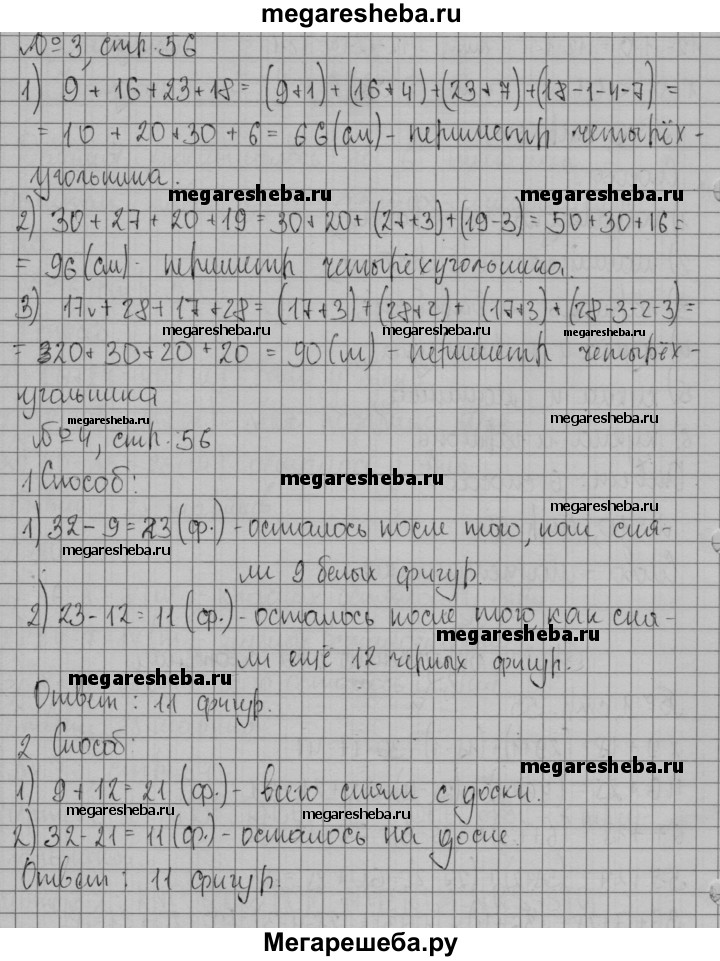 megaresheba.ru
№ 3, стр. 56
1) 9 + 16 + 23 + 18 = (9+1) + (16+4) + (23+7) + (18-1-4-7) =
= 10 + 20 + 30 + 6 = 66 (см) - периметр четырёх-
угольника.
megaresheba.ru megaresheba.ru
2) 30 + 27 + 20 + 19 = 30 + 20 + (27+3) + (19-3) = 50 + 30 + 16 =
= 96 (см) - периметр четырёхугольника.
3) 17 + 28 + 17 + 28 = (17+3) + (28+2) + (17+3) + (28-3-2-3) =
megaresheba.ru megaresheba.ru
= 20 + 30 + 20 + 20 = 90 (м) - периметр четырёх-
угольника
megaresheba.ru megaresheba.ru
№ 4, стр. 56
megaresheba.ru
1 Способ:
megaresheba.ru
1) 32 - 9 = 23 (ф.) - осталось после того, как сня-
megaresheba.ru
ли 9 белых фигур.
2) 23 - 12 = 11 (ф.) - осталось после того как сня-
megaresheba.ru
ли ещё 12 черных фигур.
megaresheba.ru
Ответ: 11 фигур.
2 Способ:
megaresheba.ru
1) 9 + 12 = 21 (ф.) - всего сняли с доски.
megaresheba.ru
2) 32 - 21 = 11 (ф.) - осталось на доске.
megaresheba.ru
Ответ: 11 фигур.
Мегарешеба.ру